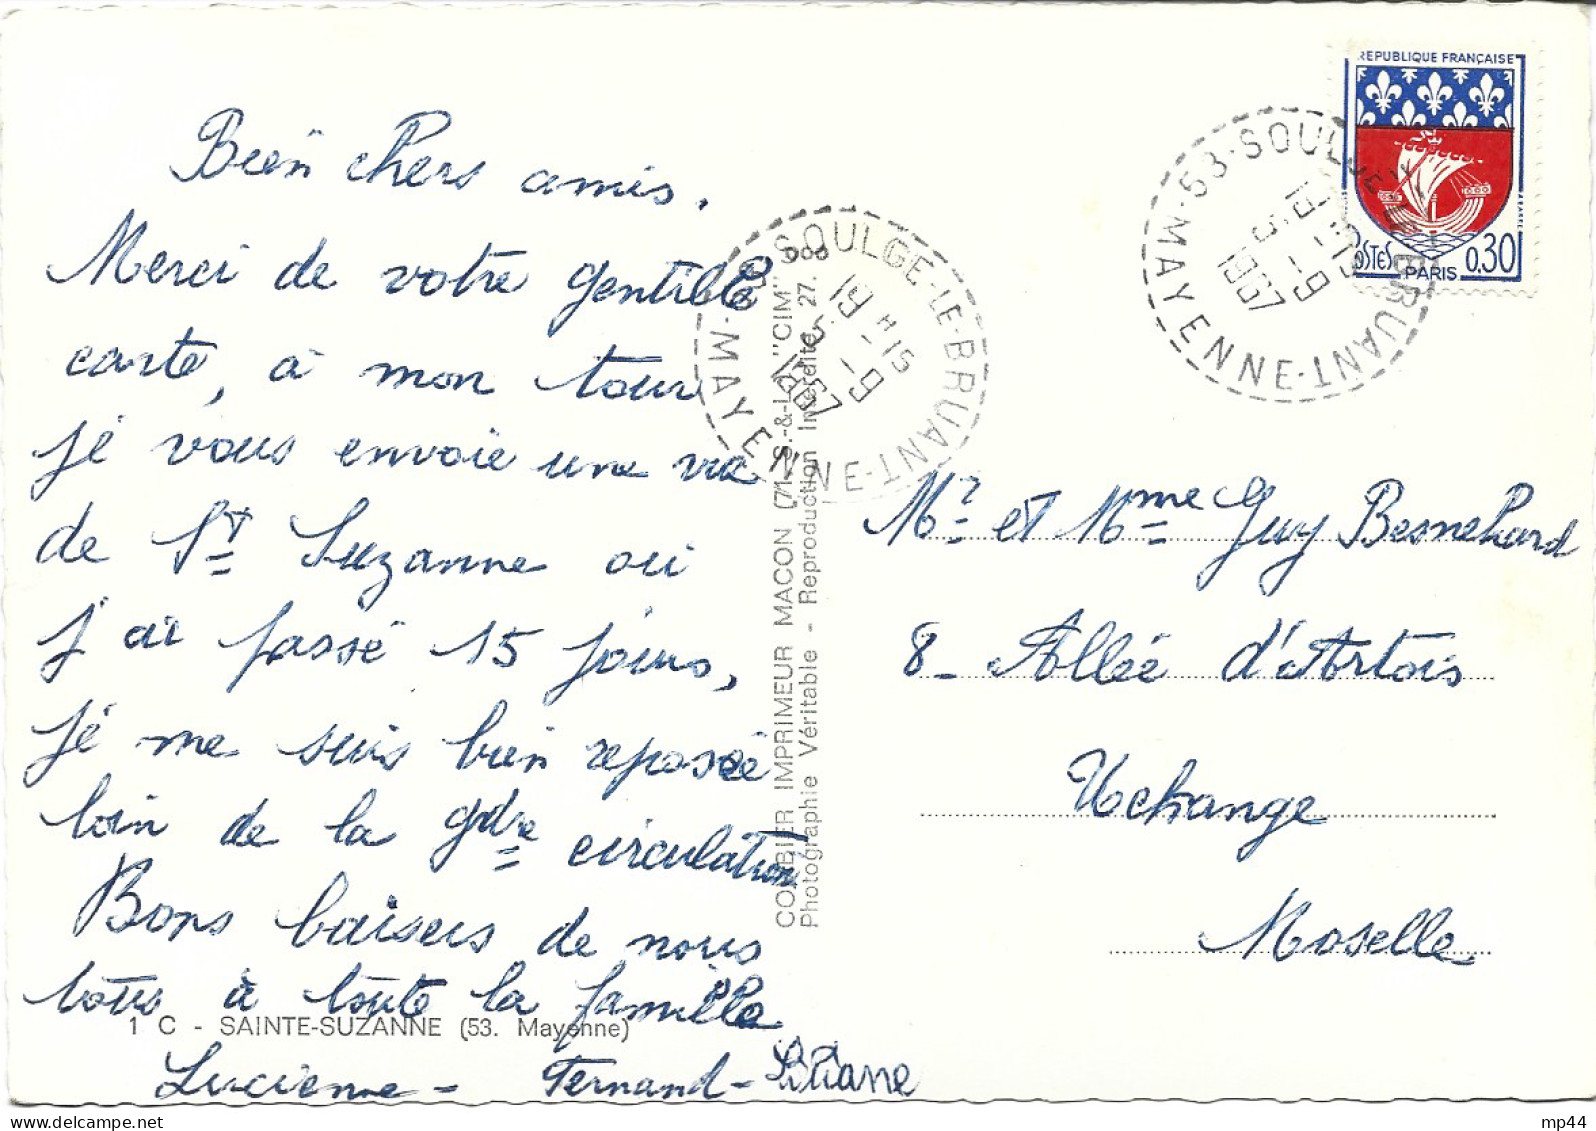 Bien chers amis.
Merci de votre gentille
carte, à mon tour
je vous envoie une vue
de St Suzanne où
j'ai passé 15 jours,
je me suis bien reposée
loin de la gdre circulation
Bons baisers de nous
tous à toute la famille
Lucienne - Fernand - Liliane
1 C - SAINTE-SUZANNE (53. Mayenne)
COMBIER IMPRIMEUR MACON (71-S.-&-L.) "CIM"
Photographie Véritable - Reproduction Interdite 27.
53·SOULGE-LE-BRUANT·MAYENNE·
19 H 15
9 - 5.
1967
REPUBLIQUE FRANÇAISE
POSTES PARIS 0,30
53·SOULGE-LE-BRUANT·MAYENNE·
19 H 15
9 - 5.
1967
Mr et Mme Guy Besnehard
8 - Allée d'Artois
Uckange
Moselle
mp44
delcampe.net